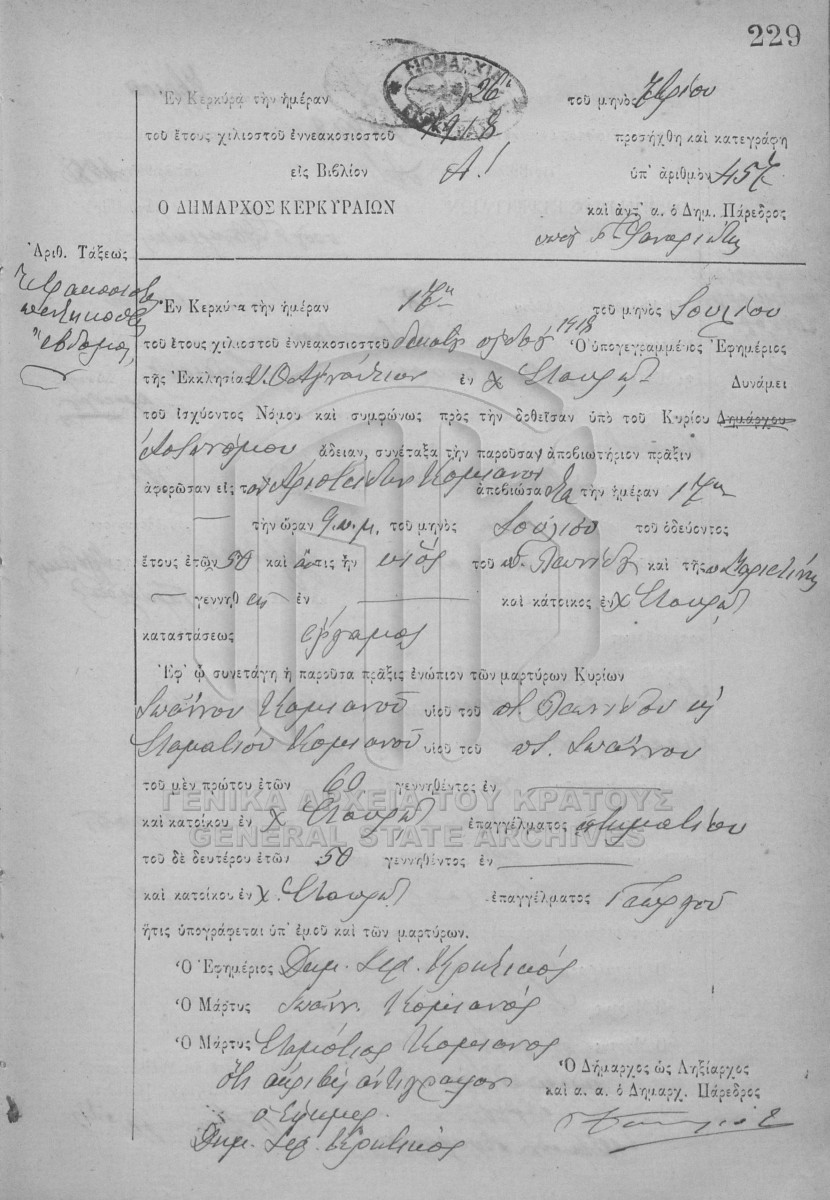 229
ΝΟΜΑΡΧΙΑ
Ἐν Κερκύρᾳ τὴν ἡμέραν 26 τοῦ μηνὸς 7βρίου
τοῦ ἔτους χιλιοστοῦ ἐννεακοσιοστοῦ 1918 προσήχθη καὶ κατεγράφη
εἰς Βιβλίον Α! ὑπ' ἀριθμὸν 457
Ο ΔΗΜΑΡΧΟΣ ΚΕΡΚΥΡΑΙΩΝ καὶ ἀντ' α. ὁ Δημ. Πάρεδρος
Ἀριθ. Τάξεως
Ἐν Κερκύρᾳ τὴν ἡμέραν 17ην τοῦ μηνὸς Ἰουλίου
τοῦ ἔτους χιλιοστοῦ ἐννεακοσιοστοῦ δεκάτου ὀγδόου 1918 Ὁ ὑπογεγραμμένος Ἐφημέριος
τῆς Ἐκκλησίας ἐν χ Σταυρῷ Δυνάμει
τοῦ ἰσχύοντος Νόμου καὶ συμφώνως πρὸς τὴν δοθεῖσαν ὑπὸ τοῦ Κυρίου Δημάρχου
Ἀστυνόμου ἄδειαν, συνέταξα τὴν παροῦσαν ἀποβιωτήριον πρᾶξιν
ἀφορῶσαν εἰς τὸν Ἀριστείδην Κομιανὸν ἀποβιώσαντα τὴν ἡμέραν 17ην
τὴν ὥραν 9 π.μ. τοῦ μηνὸς Ἰουλίου τοῦ ὁδεύοντος
ἔτους ἐτῶν 50 καὶ ὅστις ἦν υἱὸς τοῦ καὶ τῆς
γεννηθεὶς ἐν καὶ κάτοικος ἐν χ Σταυρῷ
καταστάσεως ἔγγαμος
Ἐφ' ᾧ συνετάγη ἡ παροῦσα πρᾶξις ἐνώπιον τῶν μαρτύρων Κυρίων
Ἰωάννου Κομιανοῦ υἱοῦ τοῦ
Σταματίου Κομιανοῦ υἱοῦ τοῦ ποτ. Ἰωάννου
τοῦ μὲν πρώτου ἐτῶν 60 γεννηθέντος ἐν
ΓΕΝΙΚΑ ΑΡΧΕΙΑ ΤΟΥ ΚΡΑΤΟΥΣ
καὶ κατοίκου ἐν χ Σταυρῷ ἐπαγγέλματος κτηματίου
GENERAL STATE ARCHIVES
τοῦ δὲ δευτέρου ἐτῶν 50 γεννηθέντος ἐν
καὶ κατοίκου ἐν χ. Σταυρῷ ἐπαγγέλματος Γεωργοῦ
ἥτις ὑπογράφεται ὑπ' ἐμοῦ καὶ τῶν μαρτύρων.
Ὁ Ἐφημέριος Δημ. Ιερ. Κρητικός
Ὁ Μάρτυς Ἰωάνν. Κομιανός
Ὁ Μάρτυς Σταμάτιος Κομιανος
Ὅτι ἀκριβὲς ἀντίγραφον
Ὁ Δήμαρχος ὡς Ληξίαρχος
ὁ Ἐφημερ.
καὶ α. α. ὁ Δημαρχ. Πάρεδρος
Δημ. Ιερ. Κρητικός